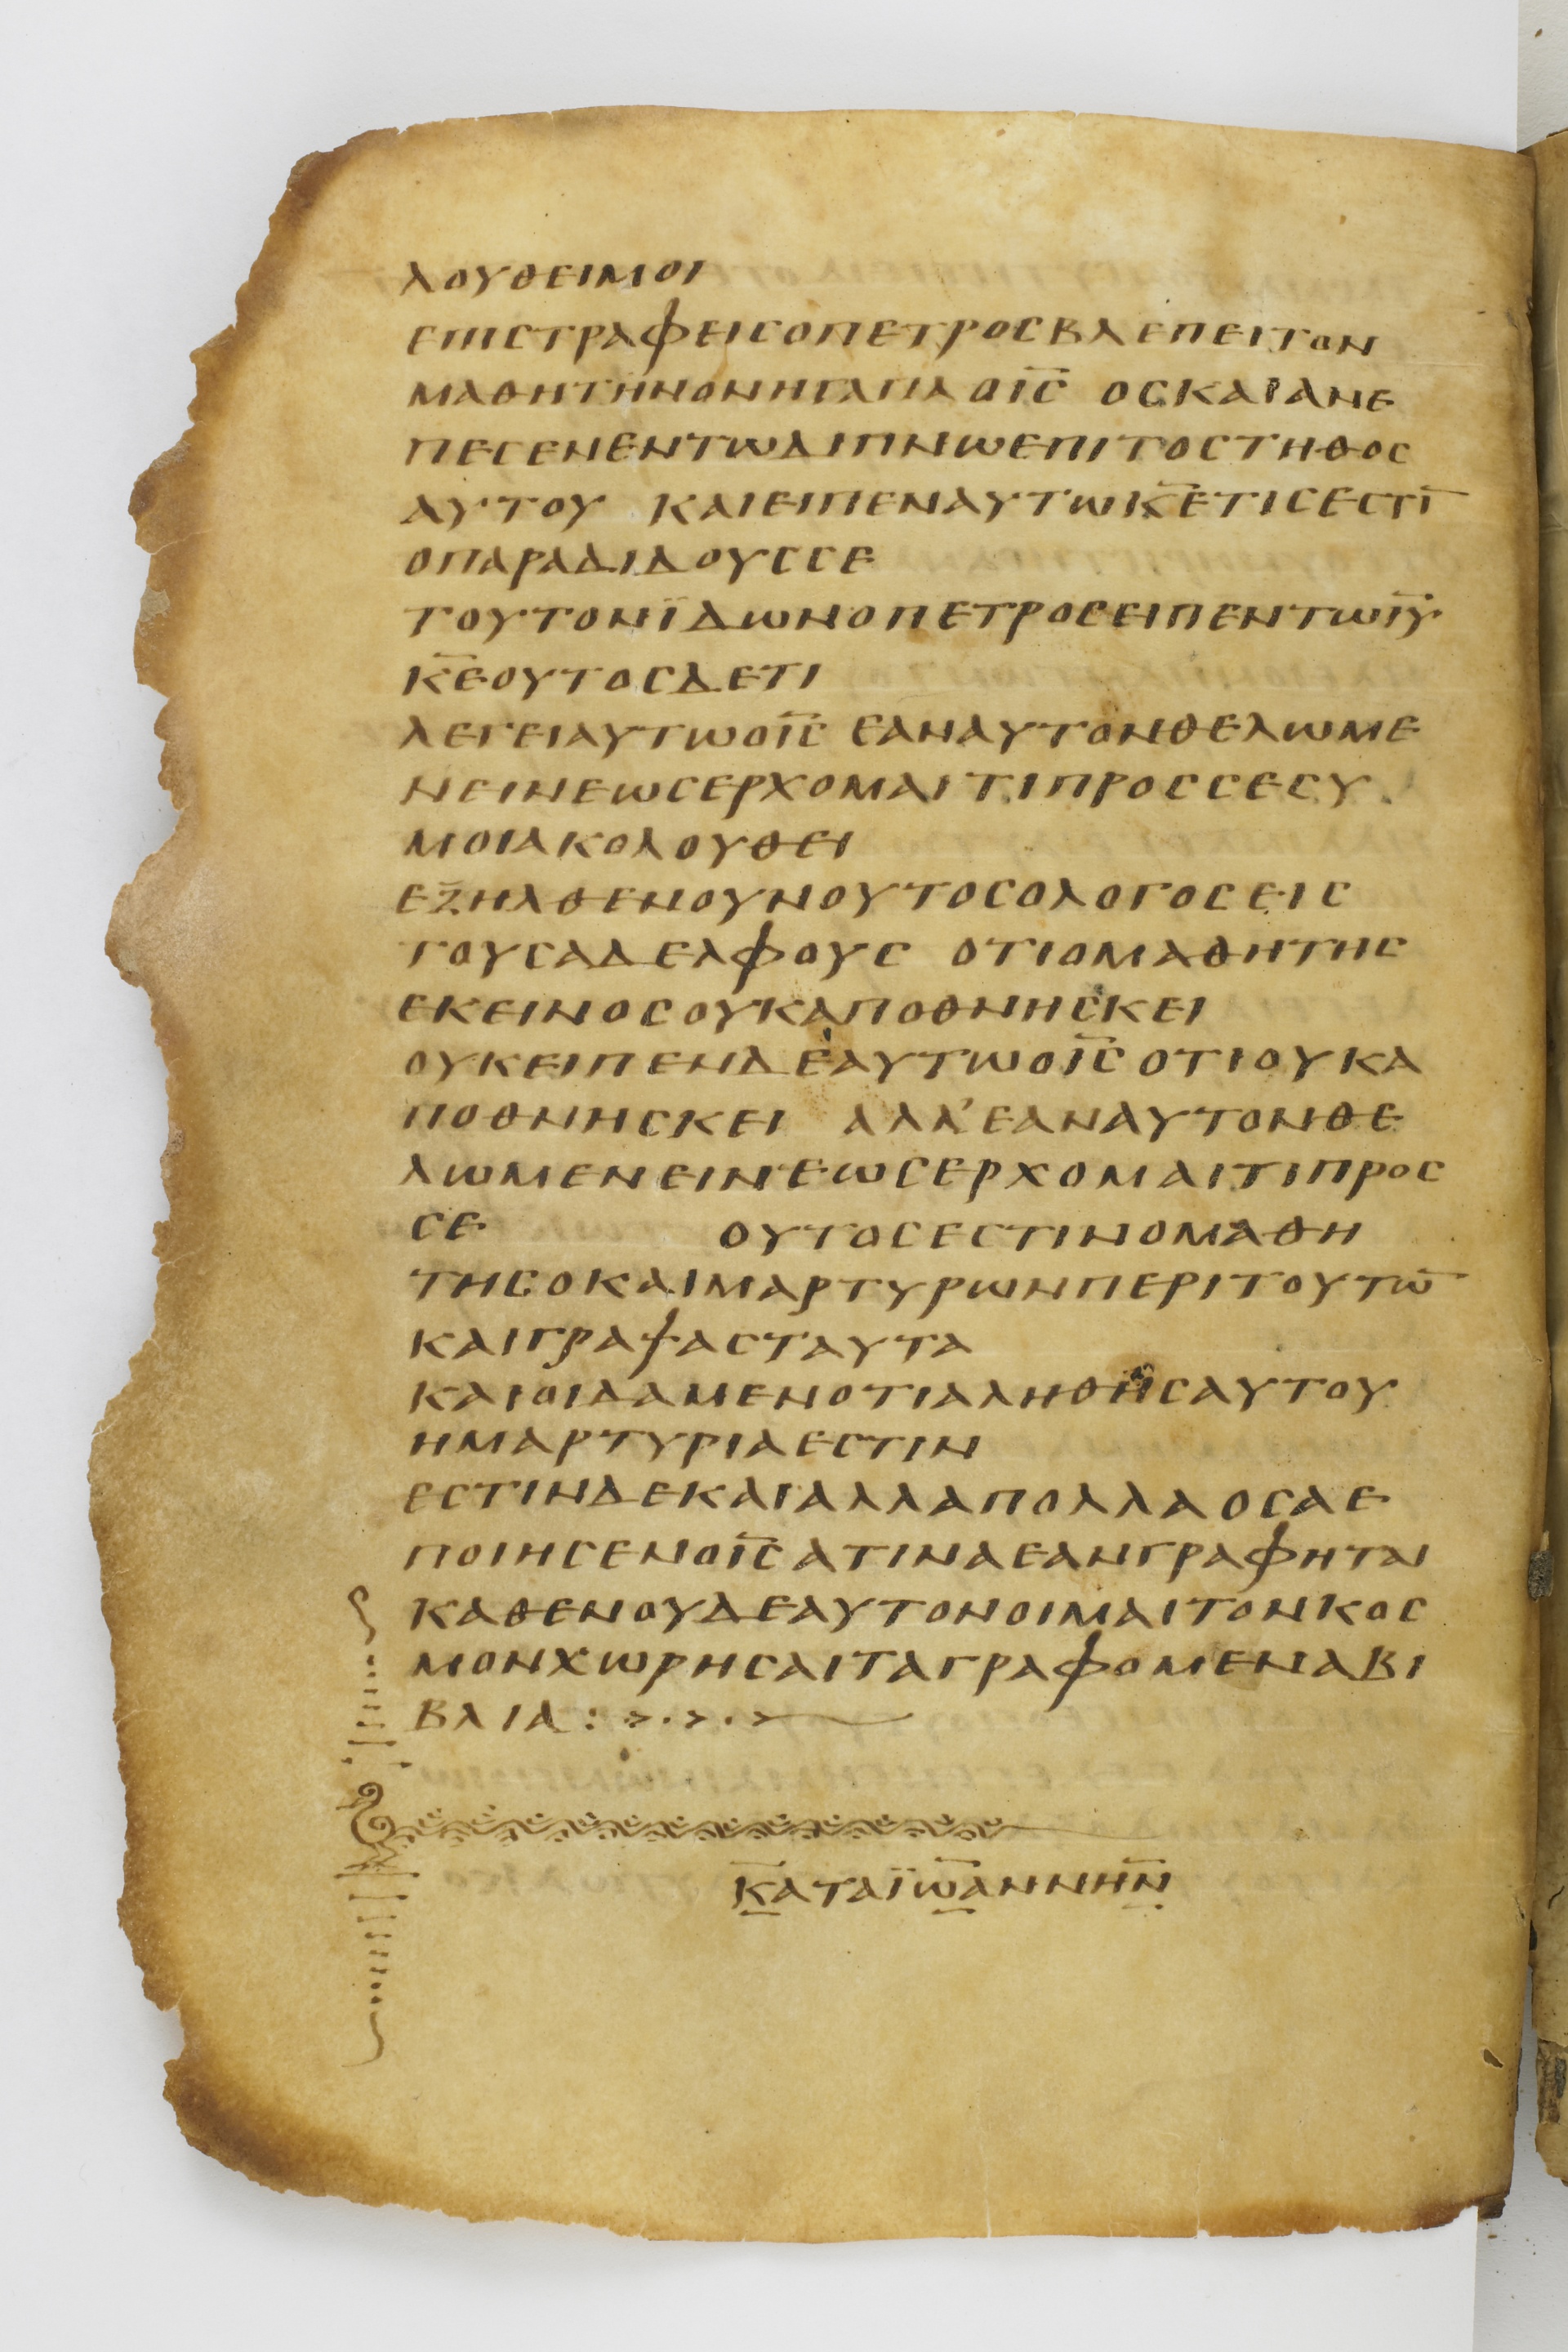 ΛΟΥΘΕΙΜΟΙ
ΕΠΙΣΤΡΑΦΕΙΣΟΠΕΤΡΟΣΒΛΕΠΕΙΤΟΝ
ΜΑΘΗΤΗΝΟΝΗΓΑΠΑΟΙ̅Σ̅ ΟΣΚΑΙΑΝΕ
ΠΕΣΕΝΕΝΤΩΔΙΠΝΩΕΠΙΤΟΣΤΗΘΟΣ
ΑΥΤΟΥ ΚΑΙΕΙΠΕΝΑΥΤΩΚ̅Ε̅ΤΙΣΕΣΤΙ̅
ΟΠΑΡΑΔΙΔΟΥΣΣΕ
ΤΟΥΤΟΝΪΔΩΝΟΠΕΤΡΟΣΕΙΠΕΝΤΩΙ̅Υ̅
Κ̅Ε̅ΟΥΤΟΣΔΕΤΙ
ΛΕΓΕΙΑΥΤΩΟΙ̅Σ̅ ΕΑΝΑΥΤΟΝΘΕΛΩΜΕ
ΝΕΙΝΕΩΣΕΡΧΟΜΑΙΤΙΠΡΟΣΣΕΣΥ
ΜΟΙΑΚΟΛΟΥΘΕΙ
ΕΞΗΛΘΕΝΟΥΝΟΥΤΟΣΟΛΟΓΟΣΕΙΣ
ΤΟΥΣΑΔΕΛΦΟΥΣ ΟΤΙΟΜΑΘΗΤΗΣ
ΕΚΕΙΝΟΣΟΥΚΑΠΟΘΝΗΣΚΕΙ
ΟΥΚΕΙΠΕΝΔΕΑΥΤΩΟΙ̅Σ̅ΟΤΙΟΥΚΑ
ΠΟΘΝΗΣΚΕΙ ΑΛΛ’ΕΑΝΑΥΤΟΝΘΕ
ΛΩΜΕΝΕΙΝΕΩΣΕΡΧΟΜΑΙΤΙΠΡΟΣ
ΣΕ ΟΥΤΟΣΕΣΤΙΝΟΜΑΘΗ
ΤΗΣΟΚΑΙΜΑΡΤΥΡΩΝΠΕΡΙΤΟΥΤΩ̅
ΚΑΙΓΡΑΨΑΣΤΑΥΤΑ
ΚΑΙΟΙΔΑΜΕΝΟΤΙΑΛΗΘΗΣΑΥΤΟΥ
ΗΜΑΡΤΥΡΙΑΕΣΤΙΝ
ΕΣΤΙΝΔΕΚΑΙΑΛΛΑΠΟΛΛΑΟΣΑΕ
ΠΟΙΗΣΕΝΟΙ̅Σ̅ΑΤΙΝΑΕΑΝΓΡΑΦΗΤΑΙ
ΚΑΘΕΝΟΥΔΕΑΥΤΟΝΟΙΜΑΙΤΟΝΚΟΣ
ΜΟΝΧΩΡΗΣΑΙΤΑΓΡΑΦΟΜΕΝΑΒΙ
ΒΛΙΑ:>·>·>
ΚΑΤΑΪΩΑΝΝΗΝ